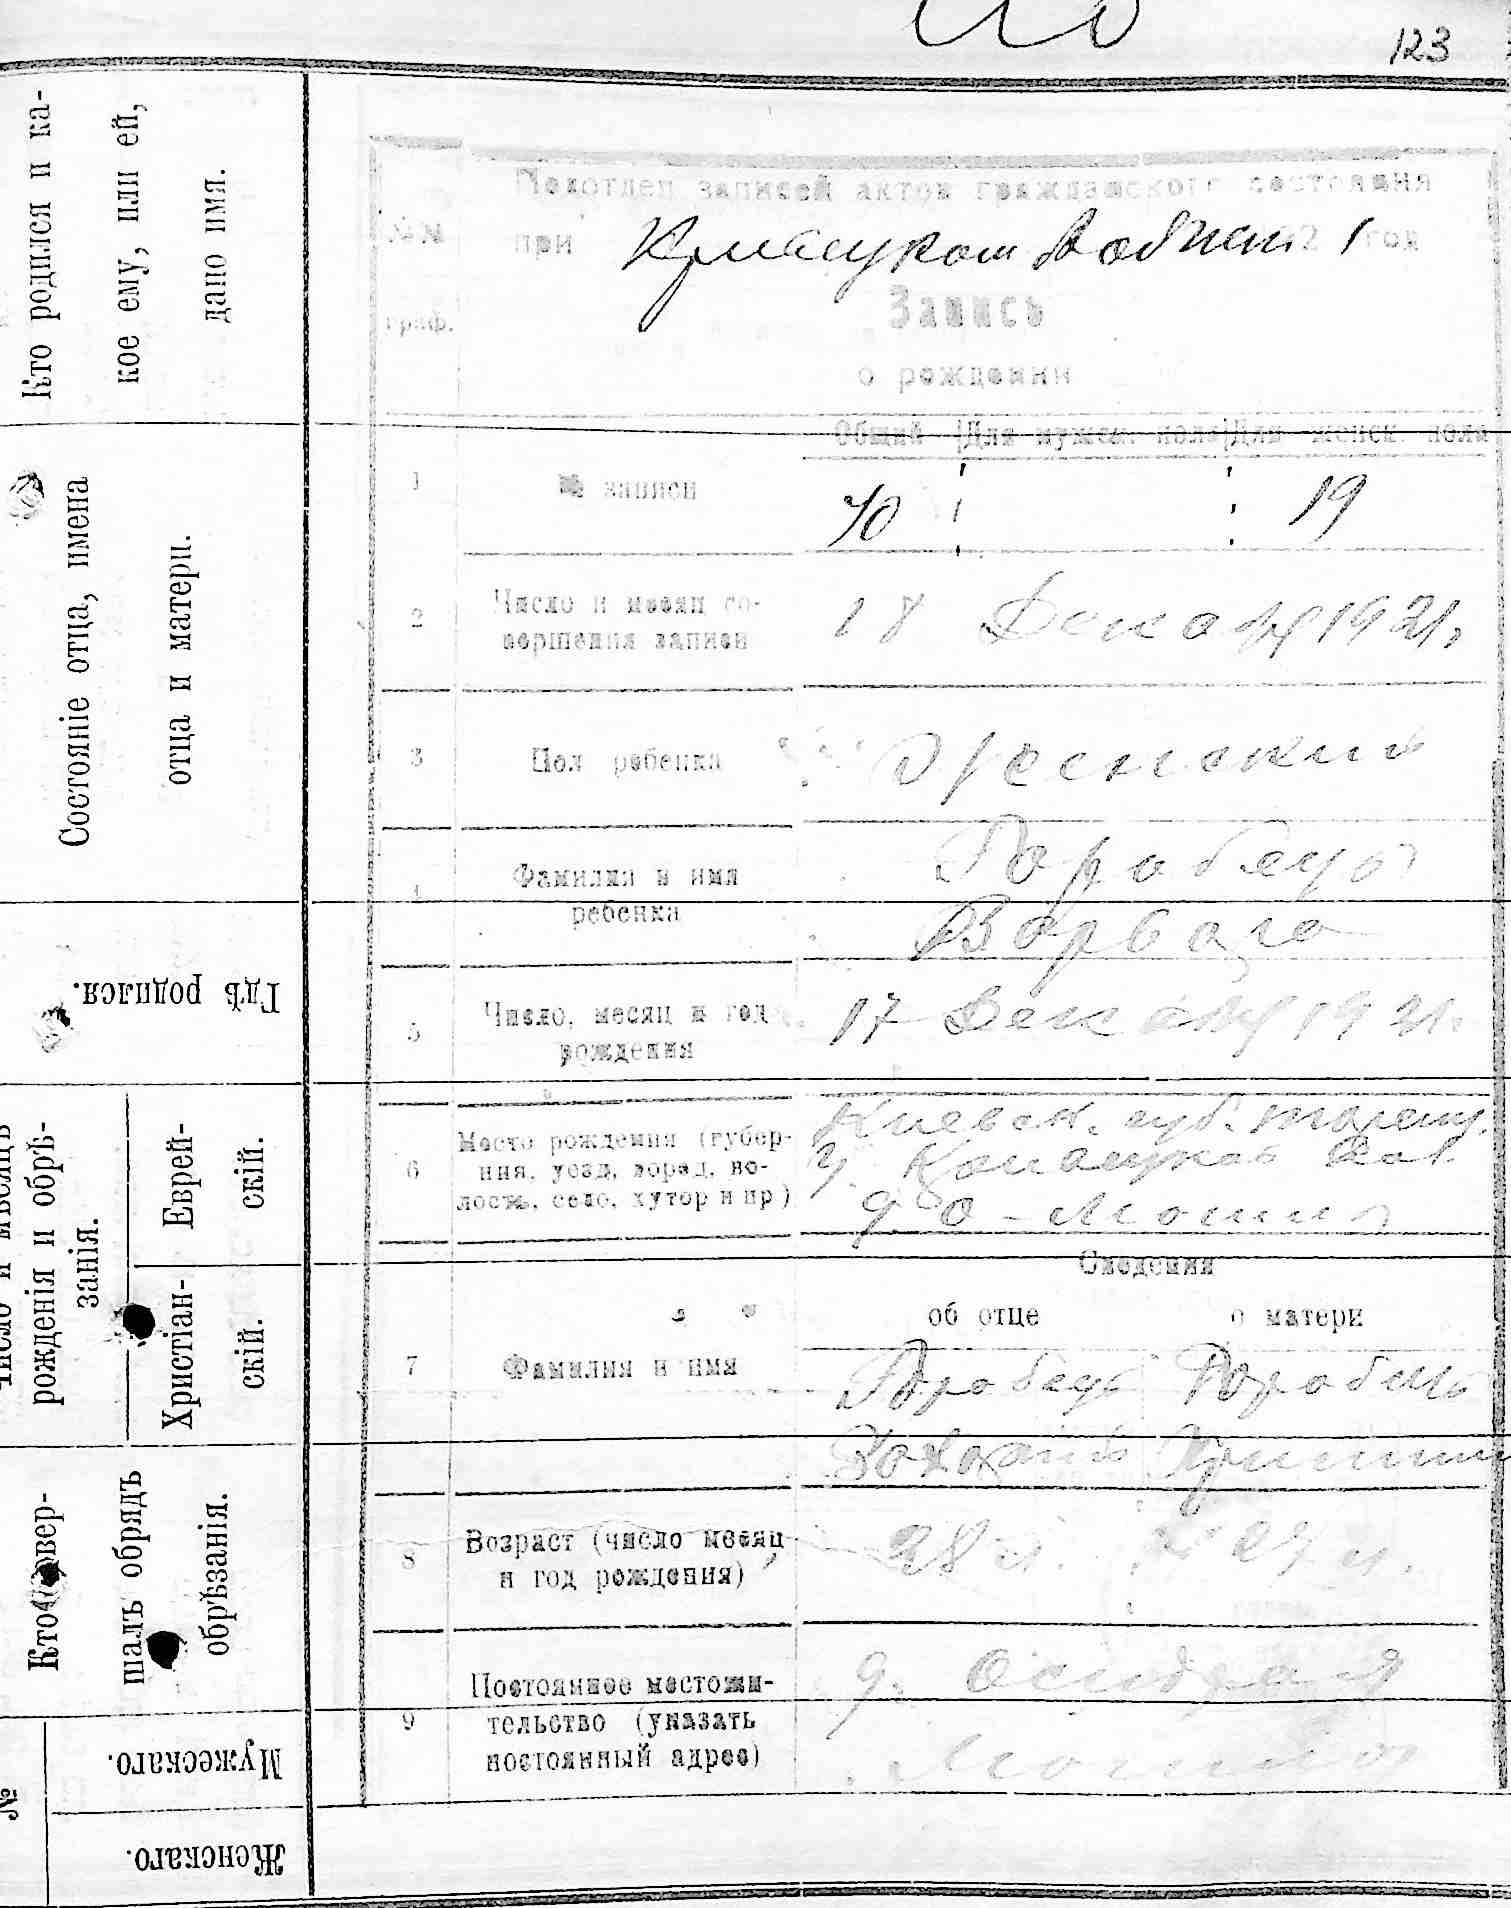 123
Кто родился и ка-
кое ему, или ей,
дано имя.
Состояніе отца, имена
отца и матери.
Гдѣ родился.
рожденія и обрѣ-
занія.
Еврей-
скій.
Христіан-
скій.
Кто совер-
шалъ обрядъ
обрѣзанія.
№
Мужескаго.
Женскаго.
Подотдел записей актов гражданского состояния
№№
граф.
при
год
Запись
о рождении
Общий Для мужск. пола Для женск. пола
1 № записи 40 19
2 Число и месяц со-
вершения записи
18 Декабря 1921г.
3 Пол ребенка Женский
4 Фамилия и имя
ребенка
Горобець
Варвара
5 Число, месяц и год
рождения
17 Декабря 1921г.
6 Место рождения (губер-
ния, уезд, город, во-
лость, село, хутор и пр)
Киевск. губ.
у. Вол.
д. О-Могила
Сведения
об отце о матери
7 Фамилия и имя
Горобець Горобець
8 Возраст (число месяц
и год рождения)
28 л. 27 л.
9 Постоянное местожи-
тельство (указать
постоянный адрес)
д. Острая
Могила